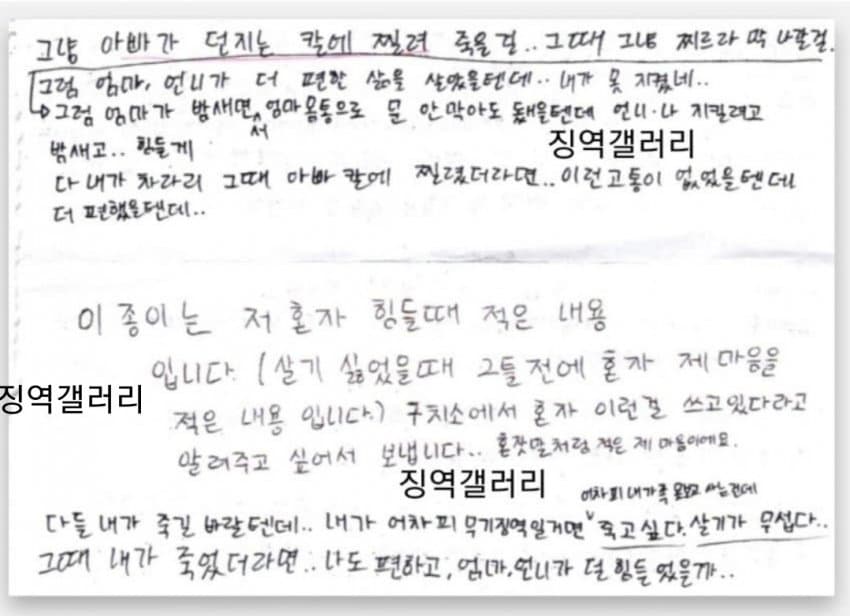 그냥 아빠가 던지는 칼에 찔려 죽을걸.. 그때 그냥 찌르라 막 나갈걸.
그럼 엄마, 언니가 더 편한 삶을 살았을텐데.. 내가 못 지켰네..
그럼 엄마가 밤새면서 엄마몸통으로 문 안막아도 됐을텐데 언니·나 지킬려고
밤새고.. 힘들게
징역갤러리
다 내가 차라리 그때 아빠 칼에 찔렸더라면.. 이런고통이 없었을텐데
더 편했을텐데..
이 종이는 저 혼자 힘들때 적은 내용
입니다. (살기 싫었을때 그틀전에 혼자 제마음을
징역갤러리
적은 내용 입니다.) 구치소에서 혼자 이런걸 쓰고있다라고
알려주고 싶어서 보냅니다.. 혼잣말처럼 적은 제 마음이에요.
징역갤러리
어차피 내가족 못보고 사는건데
다들 내가 죽길 바랄텐데.. 내가 어차피 무기징역일거면 죽고싶다. 살기가 무섭다..
그때 내가 죽었더라면.. 나도 편하고, 엄마,언니가 덜 힘들었을까..